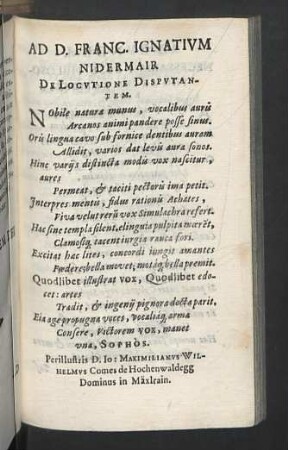 AD D. FRANC. IGNATIVM
NIDERMAIR
DE LOCVTIONE DISPVTAN-
TEM.
Nobile naturæ munus, vocalibus aurũ
Arcanos animi pandere posse sinus.
Oris lingua cavo sub fornice dentibus auram
Allidit, varios dat levis aura sonos.
Hinc varijs distincta modis vox nascitur,
aures
Permeat, & taciti pectoris ima petit.
Interpres mentis, fidus rationis Achates,
Viva velut rerũ vox Simulachra refert.
Hac sine templa silent, elinguia pulpita marẽt,
Clamosiq; tacent iurgia rauca fori.
Excitat hac lites, concordi iungit amantes
Fœdere; bella movet, motaq; bella premit.
Quodlibet illustrat VOX, Quodlibet edo-
cet: artes
Tradit, & ingenij pignora docta parit.
Eia age propugna voces, vocaliaq; arma
Consere, Victorem VOX, manet
vna, SOPHOS.
Perillustris D. Io: MAXIMILIANVS WIL-
HELMVS Comes de Hochenwaldegg
Dominus in Mäxlrain.